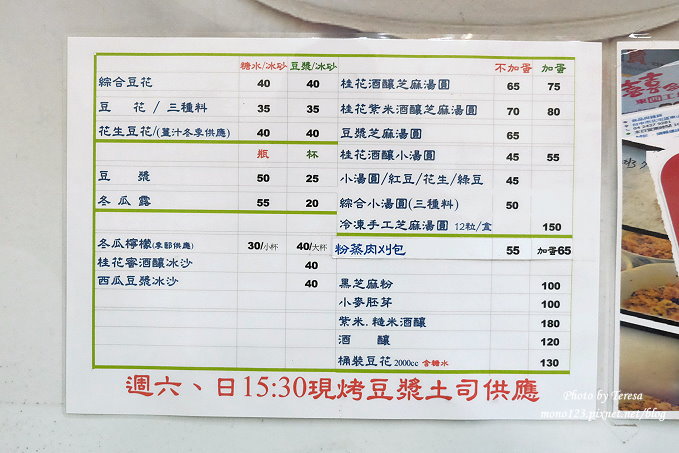 糖水/冰砂 豆漿/冰砂
綜合豆花 40 40
豆 花 / 三種料 35 35
花生豆花(薑汁冬季供應) 40 40
瓶 杯
豆 漿 50 25
冬瓜露 55 20
冬瓜檸檬(季節供應) 30/小杯 40/大杯
桂花蜜酒釀冰沙 40
西瓜豆漿冰沙 40
不加蛋 加蛋
桂花酒釀芝麻湯圓 65 75
桂花紫米酒釀芝麻湯圓 70 80
豆漿芝麻湯圓 65
桂花酒釀小湯圓 45 55
小湯圓/紅豆/花生/綠豆 45
綜合小湯圓(三種料) 50
冷凍手工芝麻湯圓 12粒/盒 150
粉蒸肉刈包 55 加蛋65
黑芝麻粉 100
小麥胚芽 100
紫米.糙米酒釀 180
酒 釀 120
桶裝豆花 2000cc 含糖水 130
週六、日15:30現烤豆漿土司供應
Photo by Teresa
mono123.pixnet.net/blog